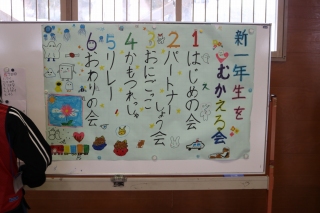 新一年生を
むかえる会
1はじめの会
2パートナーしょう会
3おにごっこ
4かもつれっしゃ
5リレー
6おわりの会